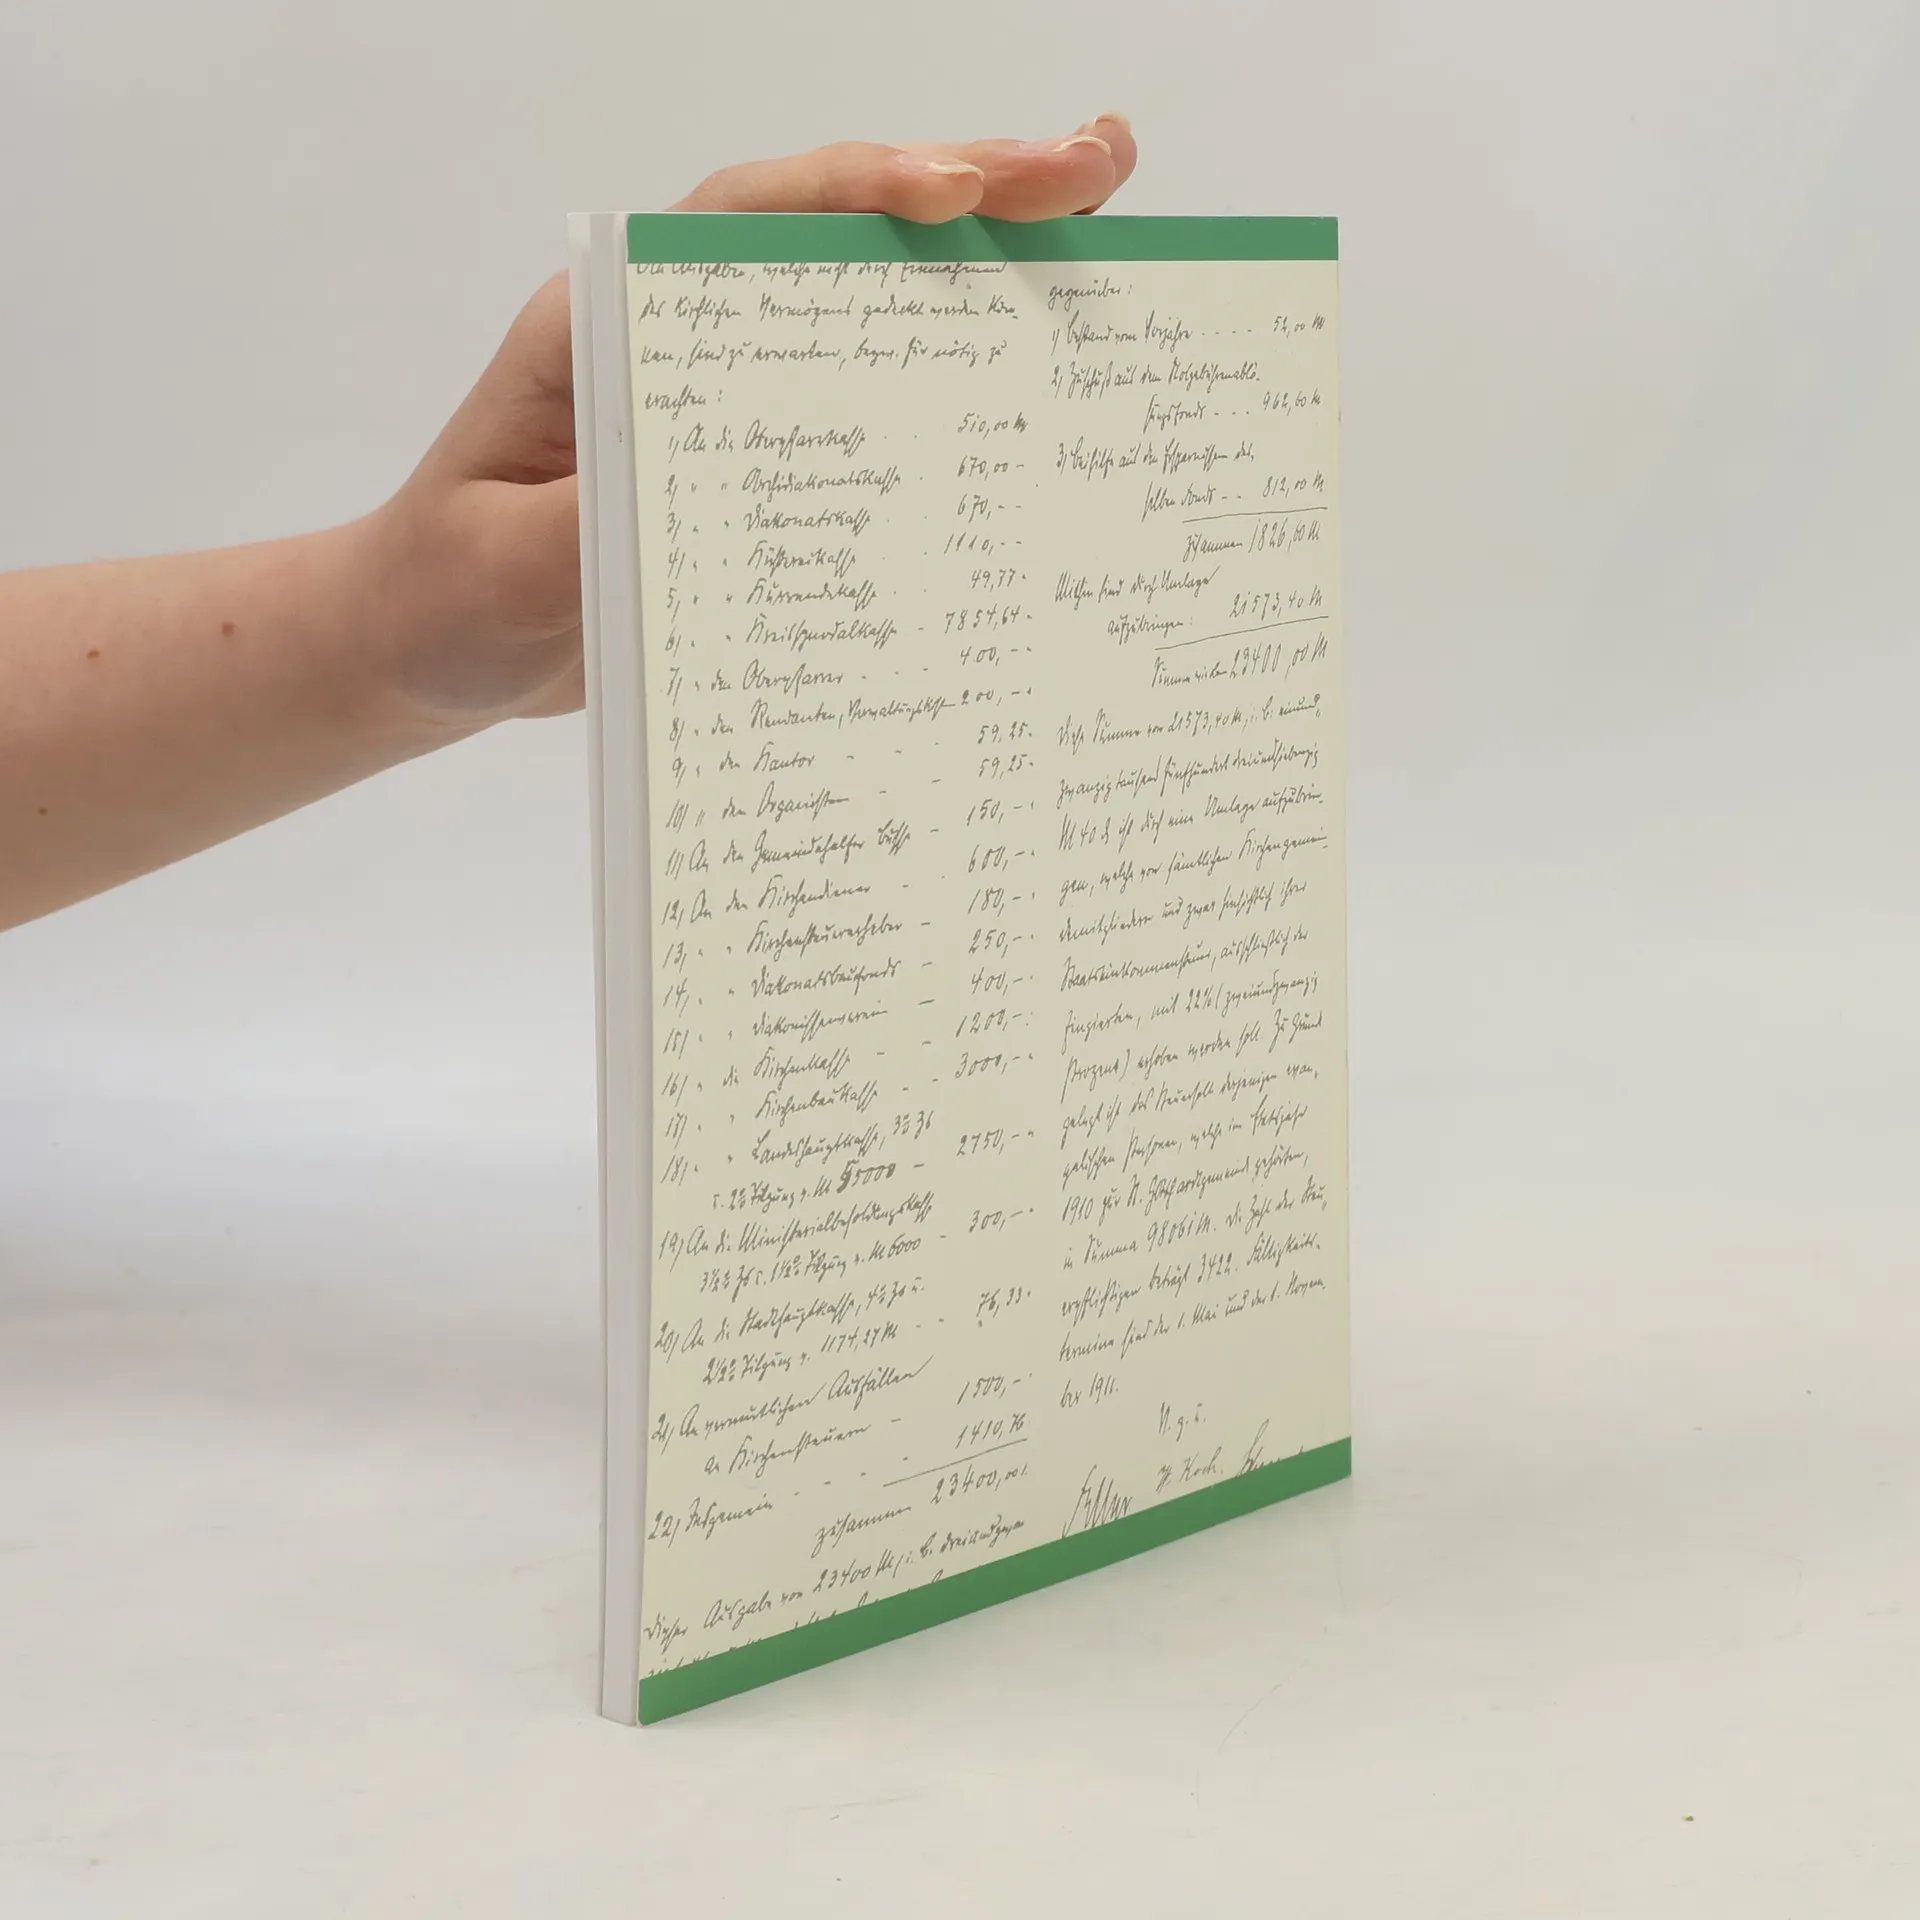 den Ausgaben, welche nicht durch Einnahmen
des kirchlichen Vermögens gedeckt werden kön-
nen, sind zu erwarten, bezw. für nötig zu
erachten:
1) An die Oberpfarrkasse . . 510,00 M
2) " " Archidiakonatskasse . 670,00 -
3) " " Diakonatskasse . . 670,- -
4) " " Küstereikasse . . 1110,- -
5) " " Kurrendekasse . . 49,77 "
6) " " Kreissynodalkasse - 7854,64 "
7) " den Oberpfarrer - - - 400,- "
8) " den Rendanten, Verwaltungskst 200,- "
9) " den Kantor - - - 59,25 "
10) " den Organisten - - 59,25 "
11) An den Gemeindehelfer - 150,- "
12) An den Kirchendiener - - 600,- "
13) " " Kirchensteuererheber - 180,- "
14) " " Diakonatsbaufonds - 250,- "
15) " " Diakonissenverein - 400,- "
16) " die Kirchenkasse - - 1200,- "
17) " " Kirchenbaukasse - - 3000,- "
18) " " Landeshauptkasse, 3% Zs
u. 2% Tilgung v. M 55000 - 2750,- "
19) An die Ministerialbesoldungskasse
3½% Zs u. 1½% Tilgung v. M 6000 - 300,- "
20) An die Stadthauptkasse, 4% Zs u.
2½% Tilgung v. 1174,27 M - - 76,33 "
21) An vermutlichen Ausfällen
an Kirchensteuern - 1500,- "
22) Insgemein - - - - 1410,76
zusammen 23400,00
Dieser Ausgabe von 23400 M, i. B.
gegenüber:
1) Bestand vom Vorjahre - - - - 52,00 M
2) Zuschuß aus dem Stolgebührenablö-
sungsfonds - - - 962,60 M
3) Beihilfe aus den Ersparnissen des-
selben Fonds - - 812,00 M
zusammen 1826,60 M
Mithin sind durch Umlage
aufzubringen: 21573,40 M
Summa wieder 23400,00 M
Diese Summe von 21573,40 M, i. B. einund-
zwanzigtausend fünfhundert dreiundsiebenzig
M 40 ₰ ist durch eine Umlage aufzubrin-
gen, welche von sämtlichen Kirchengemein-
demitgliedern und zwar hinsichtlich ihrer
Staatseinkommensteuer, ausschließlich der
fingierten, mit 22% (zweiundzwanzig
Prozent) erhoben werden soll. Zu Grund
gelegt ist das Steuersoll derjenigen evan-
gelischen Personen, welche im Etatsjahr
1910 zur St. Gotthardtgemeind gehörten,
in Summa 98061 M. Die Zahl der Steu-
erpflichtigen beträgt 3422. Fälligkeits-
termine sind der 1. Mai und der 1. Novem-
ber 1911.
V. g. u.
H. Koch.